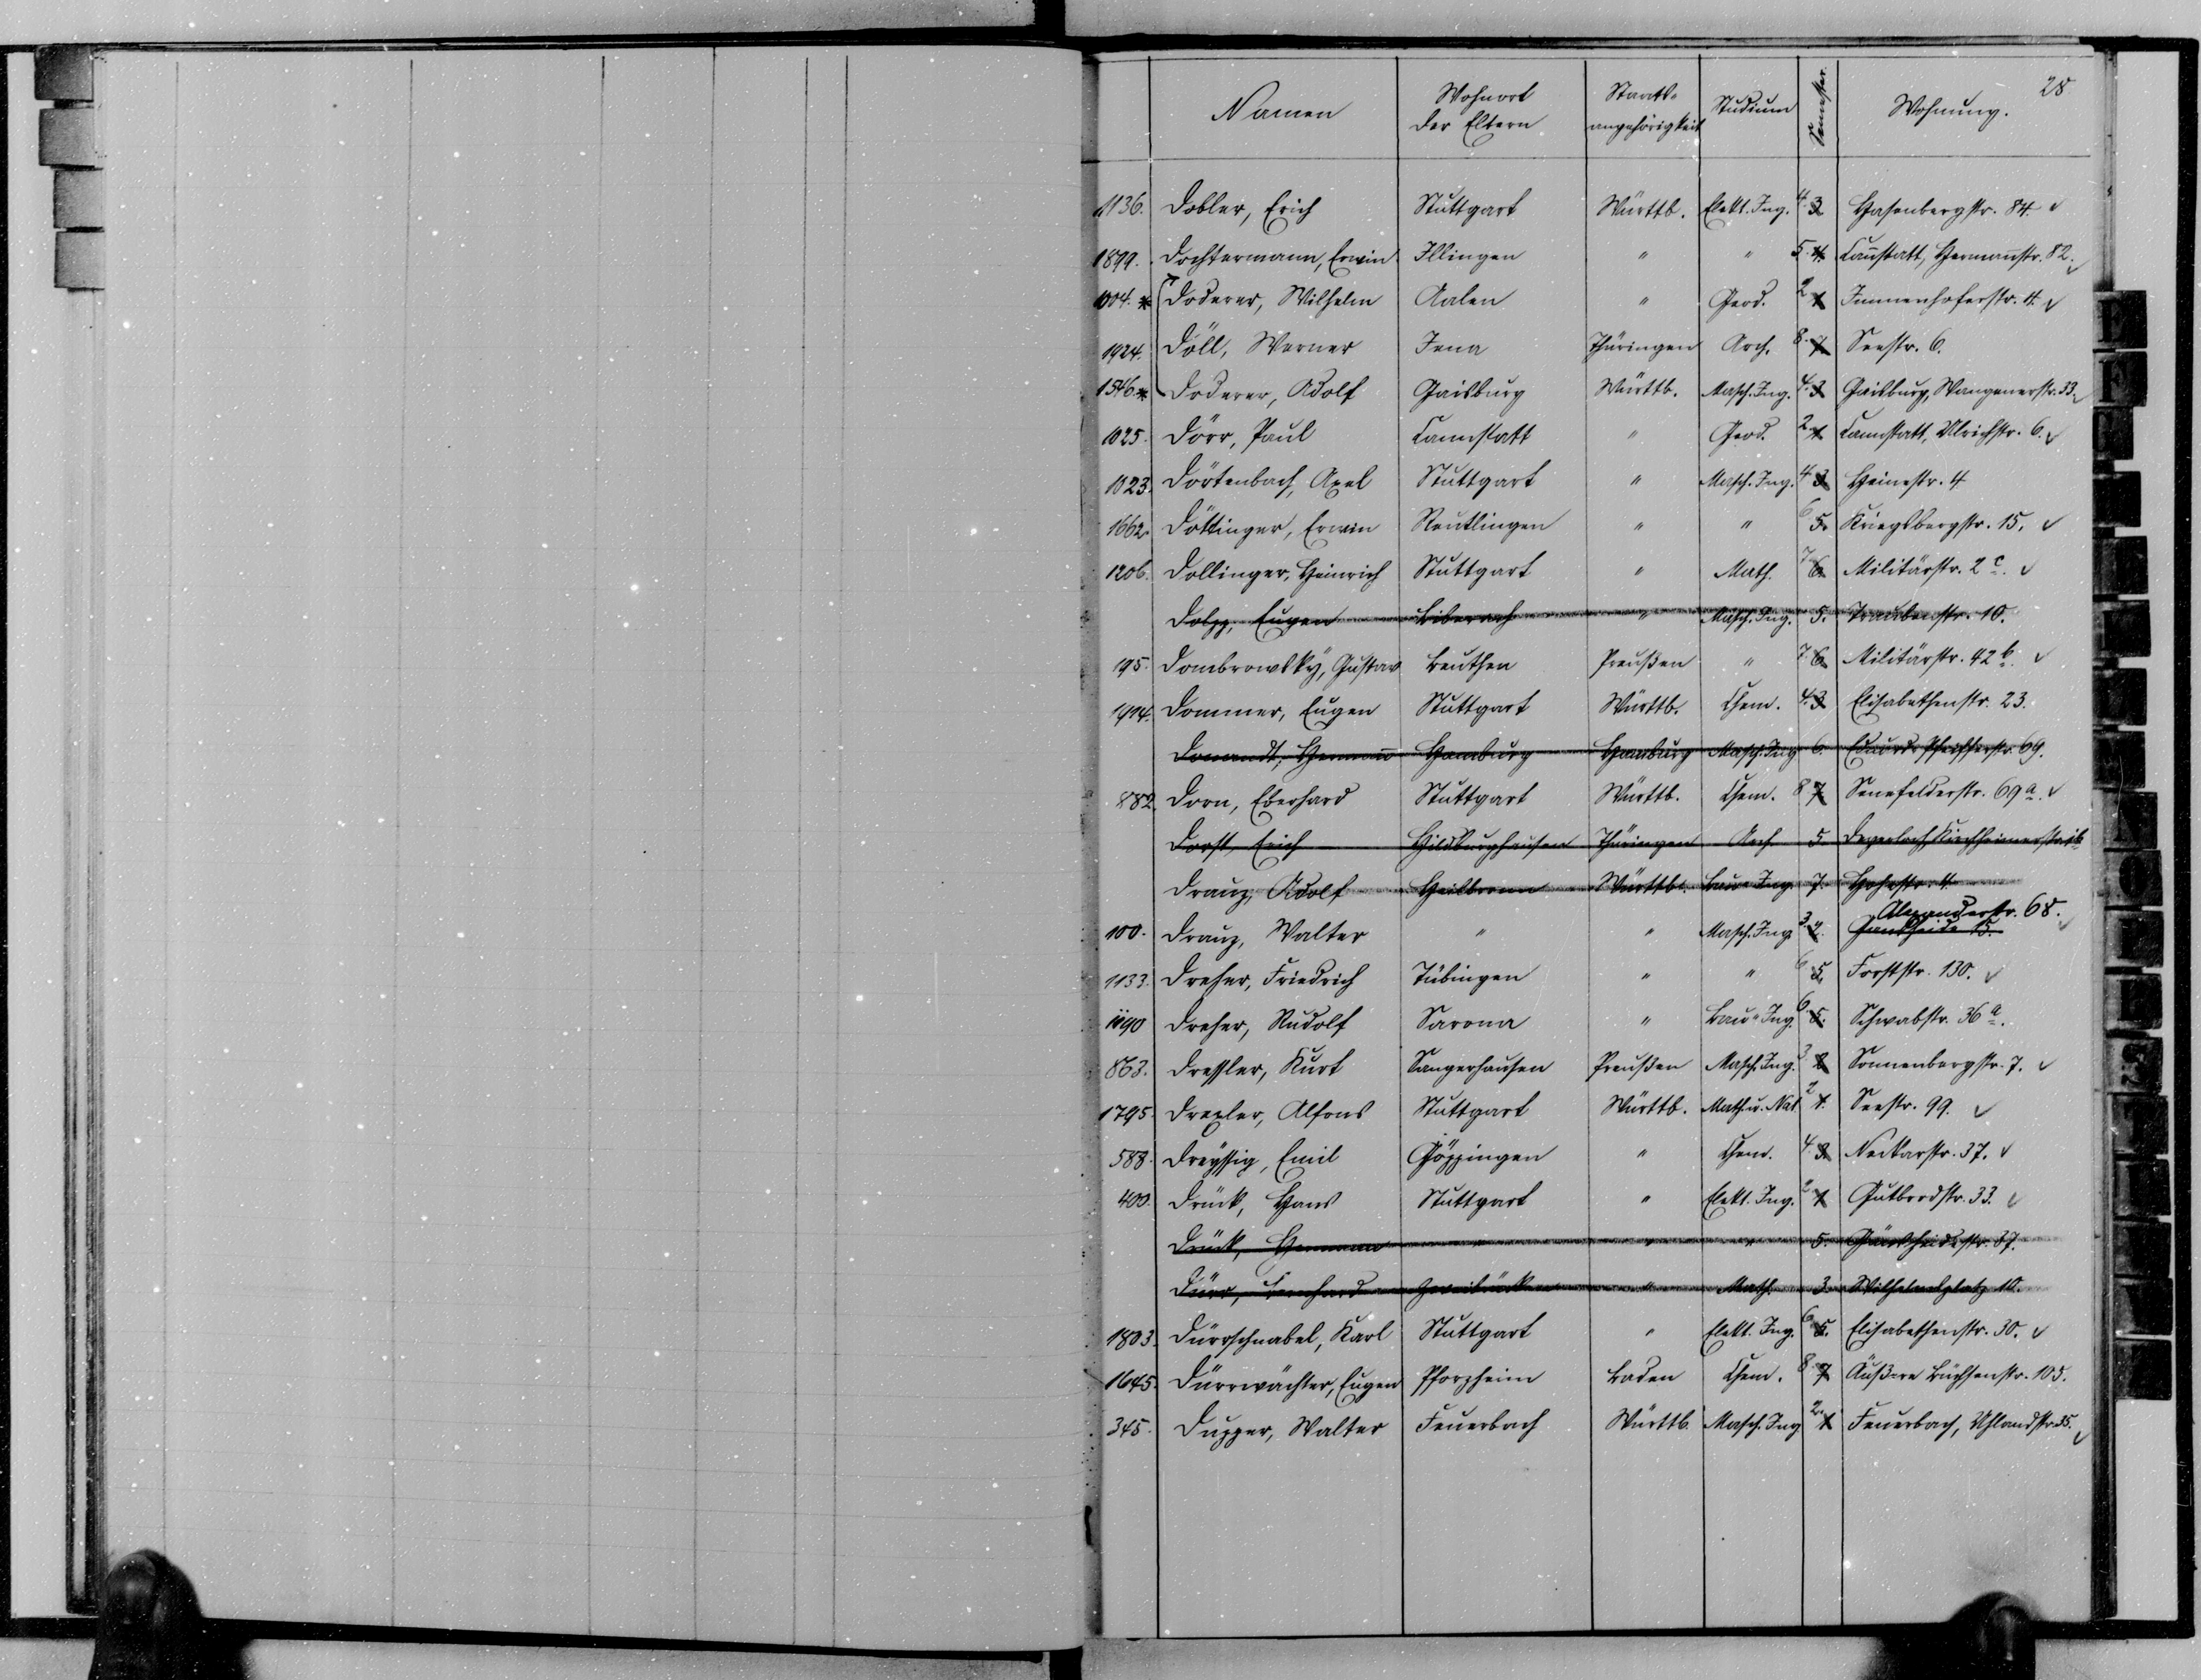 28
Namen Wohnort der Eltern Staats- angehörigkeit Studium Semester Wohnung.
1136. Dobler, Erich Stuttgart Württb. Elekt. Ing. 4. 3 Hasenbergstr. 84.
1899. Dochtermann, Erwin Illingen " " 5. 4. Cannstatt, Hermannstr. 82.
1004. * Doderer, Wilhelm Aalen " Geod. 2 1 Immenhoferstr. 4.
1924. Döll, Werner Jena Thüringen Arch. 8. 7. Seestr. 6.
1546. * Doderer, Adolf Gaisburg Württb. Masch. Ing. 4. 3 Gaisburg, Wangenerstr. 33.
1025. Dörr, Paul Cannstatt " Geod. 2. 1. Cannstatt, Ulrichstr. 6.
1023. Dörtenbach, Axel Stuttgart " Masch. Ing. 4 3. Heinestr. 4
1662. Döttinger, Erwin Reutlingen " " 6 5. Kriegsbergstr. 15.
1206. Dollinger, Heinrich Stuttgart " Math. 7. 6. Militärstr. 2 c.
Dolpp, Eugen Biberach " Masch. Ing. 5. Traubenstr. 10.
195. Dombrowsky, Gustav Beuthen Preußen " 7. 6. Militärstr. 42 b.
1914. Dommer, Eugen Stuttgart Württb. Chem. 4. 3. Elisabethenstr. 23.
Donandt, Hermann Hamburg Hamburg Masch. Ing 6. Eduard Pfeifferstr. 69.
882. Dorn, Eberhard Stuttgart Württb. Chem. 8 7. Senefelderstr. 69 a.
Dorst, Erich Hildburghausen Thüringen Arch 5. Degerloch, Kirchheimerstr.
Drauz, Adolf Heilbronn Württb. Bau-Ing. 7. Hohestr. 4.
100. Drauz, Walter " " Masch. Ing. 3. Gansheide 15. Alexanderstr. 68.
1133. Dreher, Friedrich Tübingen " " 6 5. Forststr. 130.
1190 Dreher, Rudolf Sarona " Bau-Ing. 6. 5. Schwabstr. 36 a.
863. Dressler, Kurt Sangerhausen Preußen Masch. Ing. 3. 2 Sonnenbergstr. 7.
1795. Drexler, Alfons Stuttgart Württb. Math. u. Nat 2 1. Seestr. 99.
588. Dreyssig, Emil Göppingen " Chem. 4. 3. Neckarstr. 37.
400. Drück, Hans Stuttgart " Elekt. Ing. 2. 1 Gutbrodstr. 33.
Drück, Hermann " " " 5. Gänsheidestr. 37.
Dürr, Bernhard Zweibrücken " Math. 3. Wilhelmsplatz 10.
1803. Dürrschnabel, Karl Stuttgart " Elekt. Ing. 6. 5. Elisabethenstr. 30.
1645. Dürrwächter, Eugen Pforzheim Baden Chem. 8. 7 Äußere Büchsenstr. 105.
345. Dupper, Walter Feuerbach Württb. Masch. Ing 2. 1 Feuerbach, Uhlandstr. 35.